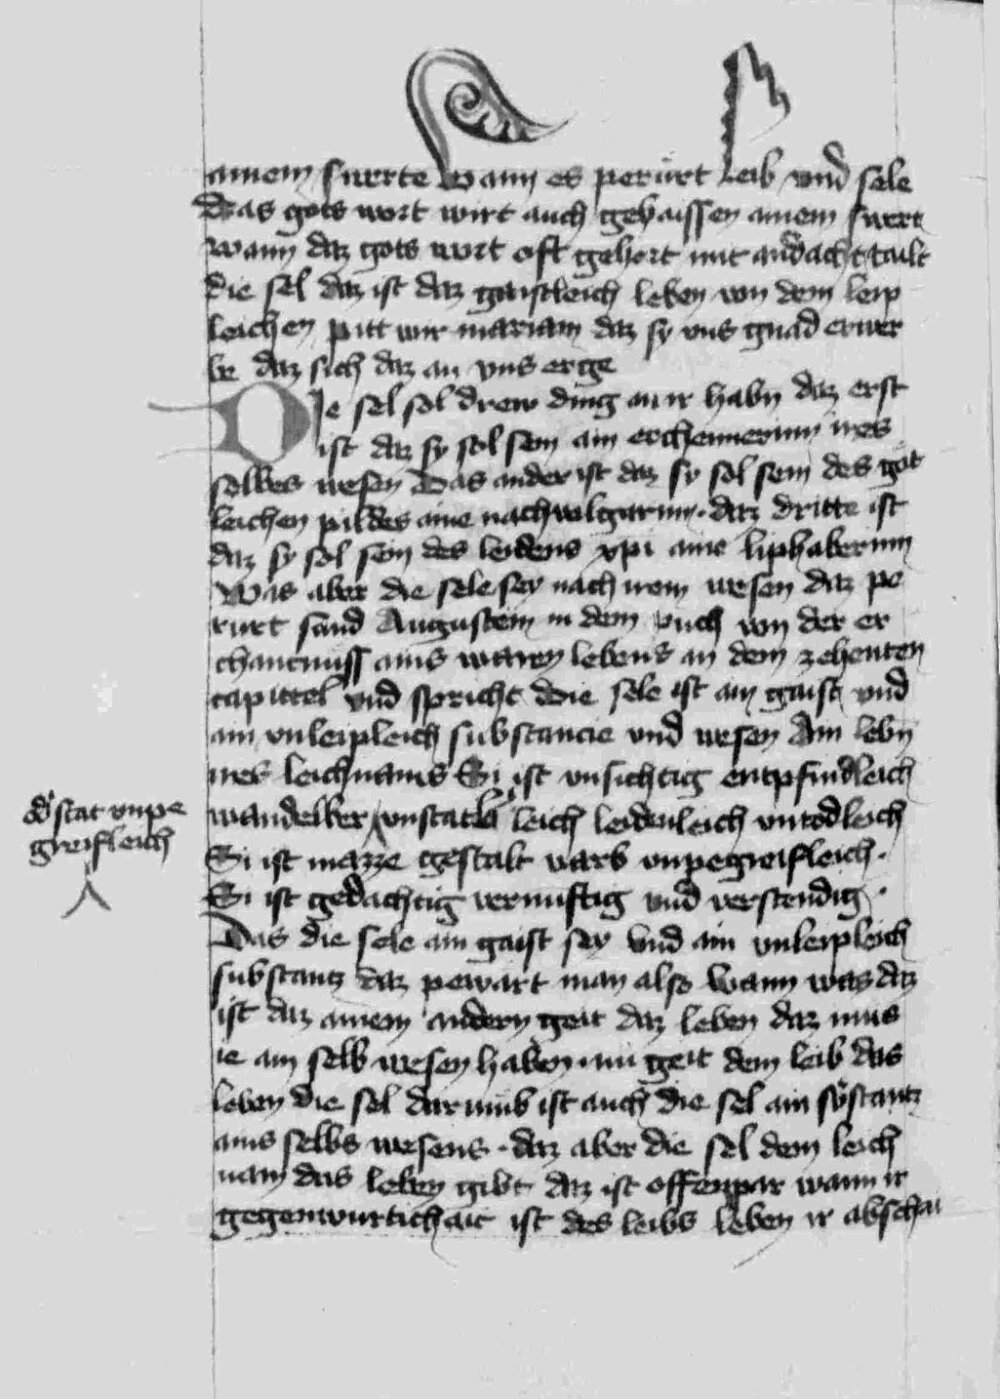 ainem swerte Wann es perürt Leib vnd sele
Das gots wort wirt auch gehaissen ainem swert
wann daz gots wort oft gehort mit andacht tailt
die sel daz ist daz gaistleich leben von dem leip
leichen pitt wir mariam daz sy vns gnad erwer
be daz sich daz an vns erge
Die sel sol drew ding an ir habn daz erst
ist daz sy sol sein ain erchennerinn ires
selbes wesen Das ander ist daz sy sol sein des göt
leichen pildes aine nachvolgarinn. daz dritte ist
daz sy sol sein des leidens xpi aine liphaberinn
Was aber die sele sey nach irem wesen daz pe
rurt sand Augustein in dem puch von der er
chantnuss ains waren lebens an dem zehenten
capittel vnd spricht Die sele ist ain gaist vnd
ain vnleipleich substancie vnd wesen Ain lebn
ires leichnams Si ist vnsichtig enpfindleich
wandelber vnstatleich leidenleich vntodleich
dͦ stat vnpe
greifleich
Si ist mazze gestalt varb vnpegreifleich.
Si ist gedachtig vernuftig vnd verstendig.
Das die sele ain gaist sey vnd ain vnleipleich
substantz daz pewart man also Wann was daz
ist daz ainem andern geit daz leben daz mus
ie ain selb wesen haben. nu geit dem leib das
leben die sel darumb ist auch die sel ain sůstantz
ains selbs wesens. daz aber die sel dem leich
nam das leben gibt daz ist offenpar wann ir
gegenwurtichait ist des leibs leben ir abschai